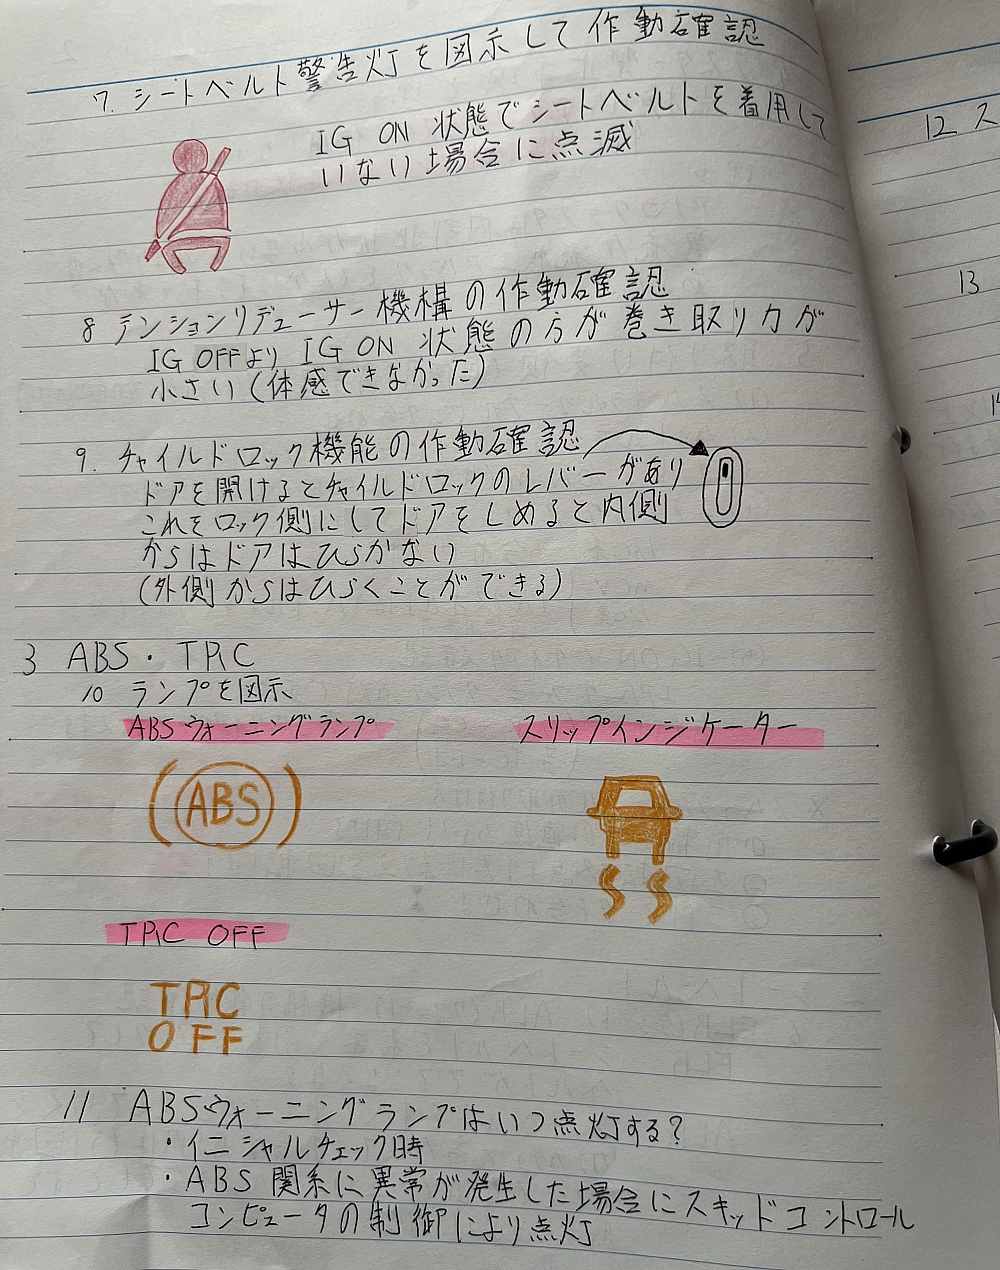 7. シートベルト警告灯を図示して作動確認
IG ON 状態でシートベルトを着用して
いない場合に点滅
8 テンションリデューサー機構の作動確認
IG OFFより IG ON 状態の方が巻き取り力が
小さい(体感できなかった)
9. チャイルドロック機能の作動確認
ドアを開けるとチャイルドロックのレバーがあり
これをロック側にしてドアをしめると内側
からはドアはひらかない
(外側からはひらくことができる)
3 ABS・TRC
10 ランプを図示
ABSウォーニングランプ
スリップインジケーター
ABS
TRC OFF
TRC
OFF
11 ABSウォーニングランプはいつ点灯する?
・イニシャルチェック時
・ABS関系に異常が発生した場合にスキッドコントロール
コンピュータの制御により点灯
12 ス
13